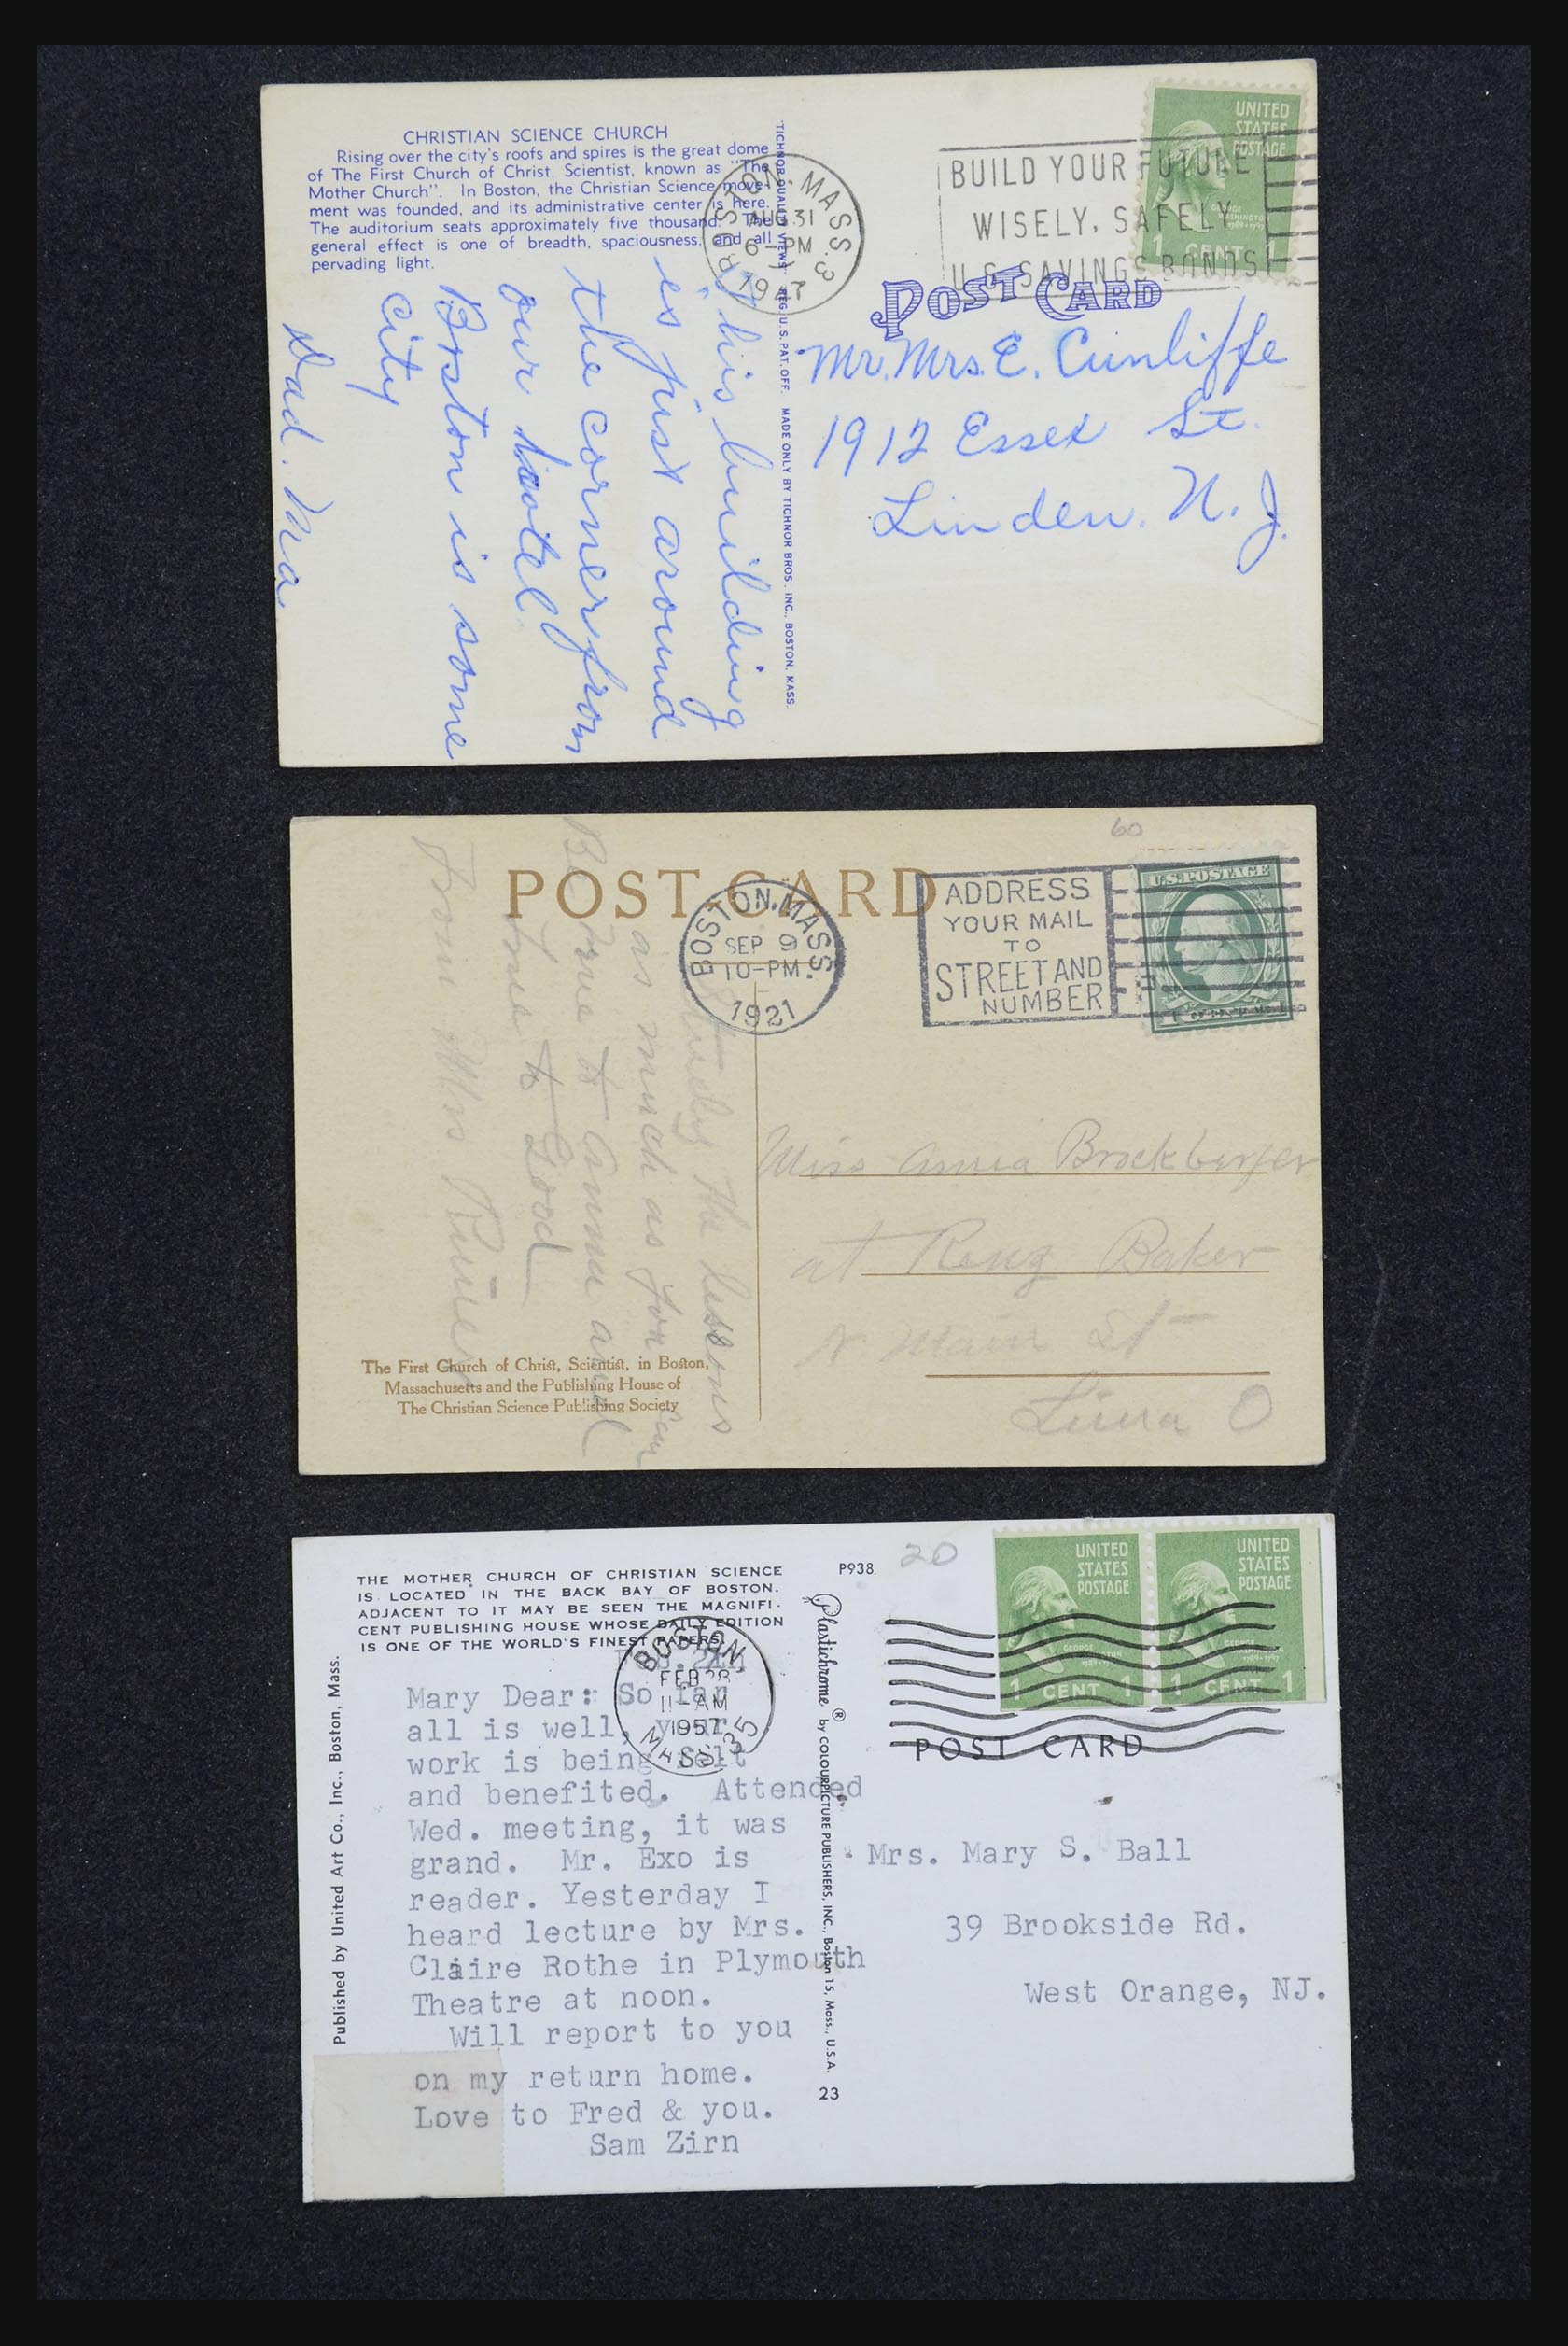 CHRISTIAN SCIENCE CHURCH
Rising over the city's roofs and spires is the great dome
of The First Church of Christ, Scientist, known as "The
Mother Church". In Boston, the Christian Science move-
ment was founded, and its administrative center is here.
The auditorium seats approximately five thousand. The
general effect is one of breadth, spaciousness, and all
pervading light.
This building
is just around
the corner from
our hotel.
Boston is some
city
Dad. Ma
TICHNOR QUALITY VIEWS REG. U.S. PAT. OFF. MADE ONLY BY TICHNOR BROS. INC., BOSTON, MASS.
BOSTON, MASS. 3
AUG 31
6-PM
BUILD YOUR FUTURE
WISELY, SAFELY
U.S. SAVINGS BONDS
UNITED
STATES
POSTAGE
GEORGE
WASHINGTON
1789-1797
1 CENT 1
POST CARD
Mr. Mrs. E. Cunliffe
1912 Essex St.
Linden. N. J.
60
POST CARD
BOSTON, MASS.
SEP 9
10-PM
1921
ADDRESS
YOUR MAIL
TO
STREET AND
NUMBER
U.S. POSTAGE
Study the lessons
as much as you can
Be True to Anna and
True to Good
From Mrs
The First Church of Christ, Scientist, in Boston,
Massachusetts and the Publishing House of
The Christian Science Publishing Society
Miss Anna Brockberger
at Renz Baker
N Main St
Lima O
THE MOTHER CHURCH OF CHRISTIAN SCIENCE
IS LOCATED IN THE BACK BAY OF BOSTON.
ADJACENT TO IT MAY BE SEEN THE MAGNIFI-
CENT PUBLISHING HOUSE WHOSE DAILY EDITION
IS ONE OF THE WORLD'S FINEST PAPERS.
P938
20
BOSTON,
FEB 28
11-AM
1957
MASS. 35
UNITED
STATES
POSTAGE
GEORGE
WASHINGTON
1 CENT 1
UNITED
STATES
POSTAGE
GEORGE
1789-1797
1 CENT 1
POST CARD
Mary Dear: So far
all is well, your
work is being felt
and benefited. Attended
Wed. meeting, it was
grand. Mr. Exo is
reader. Yesterday I
heard lecture by Mrs.
Claire Rothe in Plymouth
Theatre at noon.
Will report to you
on my return home.
Love to Fred & you.
Sam Zirn
Published by United Art Co., Inc., Boston, Mass.
Plastichrome ® by COLOURPICTURE PUBLISHERS, INC., Boston 15, Mass., U.S.A.
23
Mrs. Mary S. Ball
39 Brookside Rd.
West Orange, NJ.